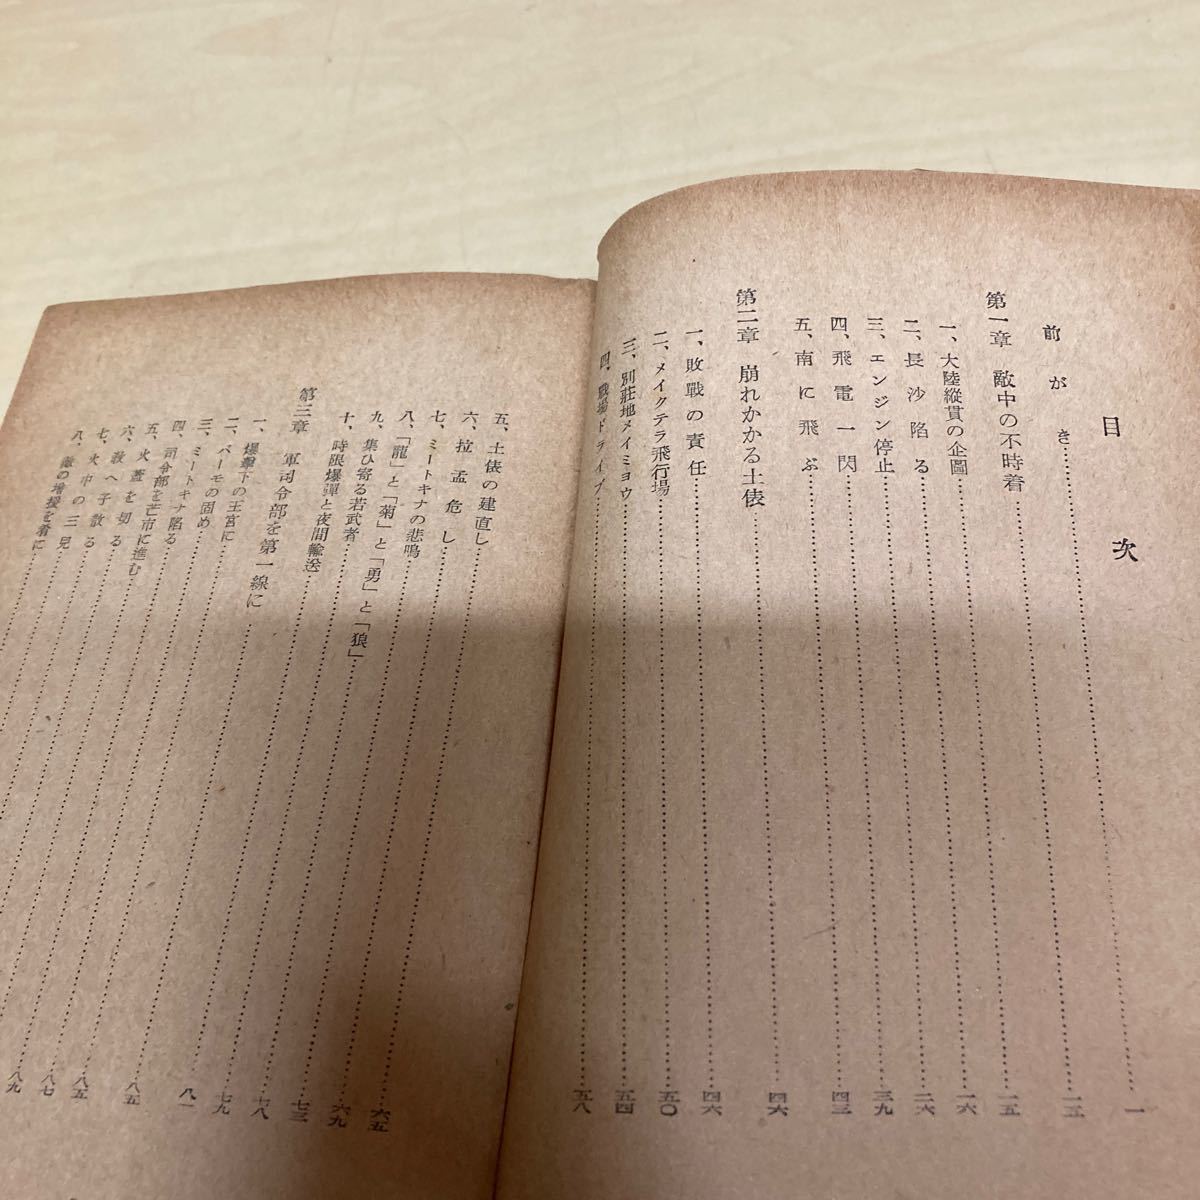 目次
前がき……一
第一章　敵中の不時着……一三
一、大陸縦貫の企圖……一五
二、長沙陷る……一六
三、エンジン停止……二六
四、飛電一閃……三九
五、南に飛ぶ……四三
第二章　崩れかかる土俵……四六
一、敗戰の責任……四六
二、メイクテラ飛行場……五〇
三、別莊地メイミヨウ……五四
四、戰場ドライブ……五八
五、土俵の建直し……六五
六、拉孟危し……六九
七、ミートキナの悲鳴……七三
八、「龍」と「菊」と「勇」と「狼」……七八
九、集ひ寄る若武者……七九
十、時限爆彈と夜間輸送……八一
第三章　軍司令部を第一線に……八五
一、爆撃下の王宮に……八五
二、バーモの固め……八七
三、ミートキナ陷る……八九
四、司令部を芒市に進む……
五、火蓋を切る……
六、敎へ子散る……
七、火中の三兒……
八、敵の増援を肴に……